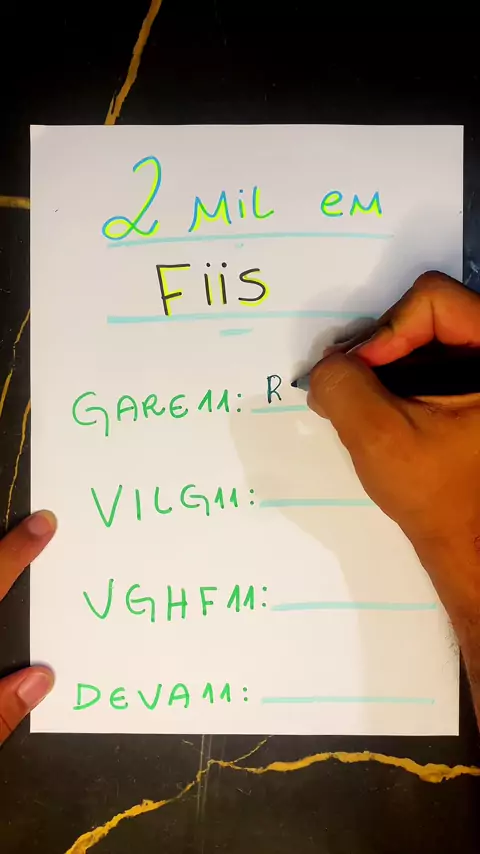 2 MiL EM
FiiS
GARE11: R
VILG11:
VGHF11:
DEVA11: